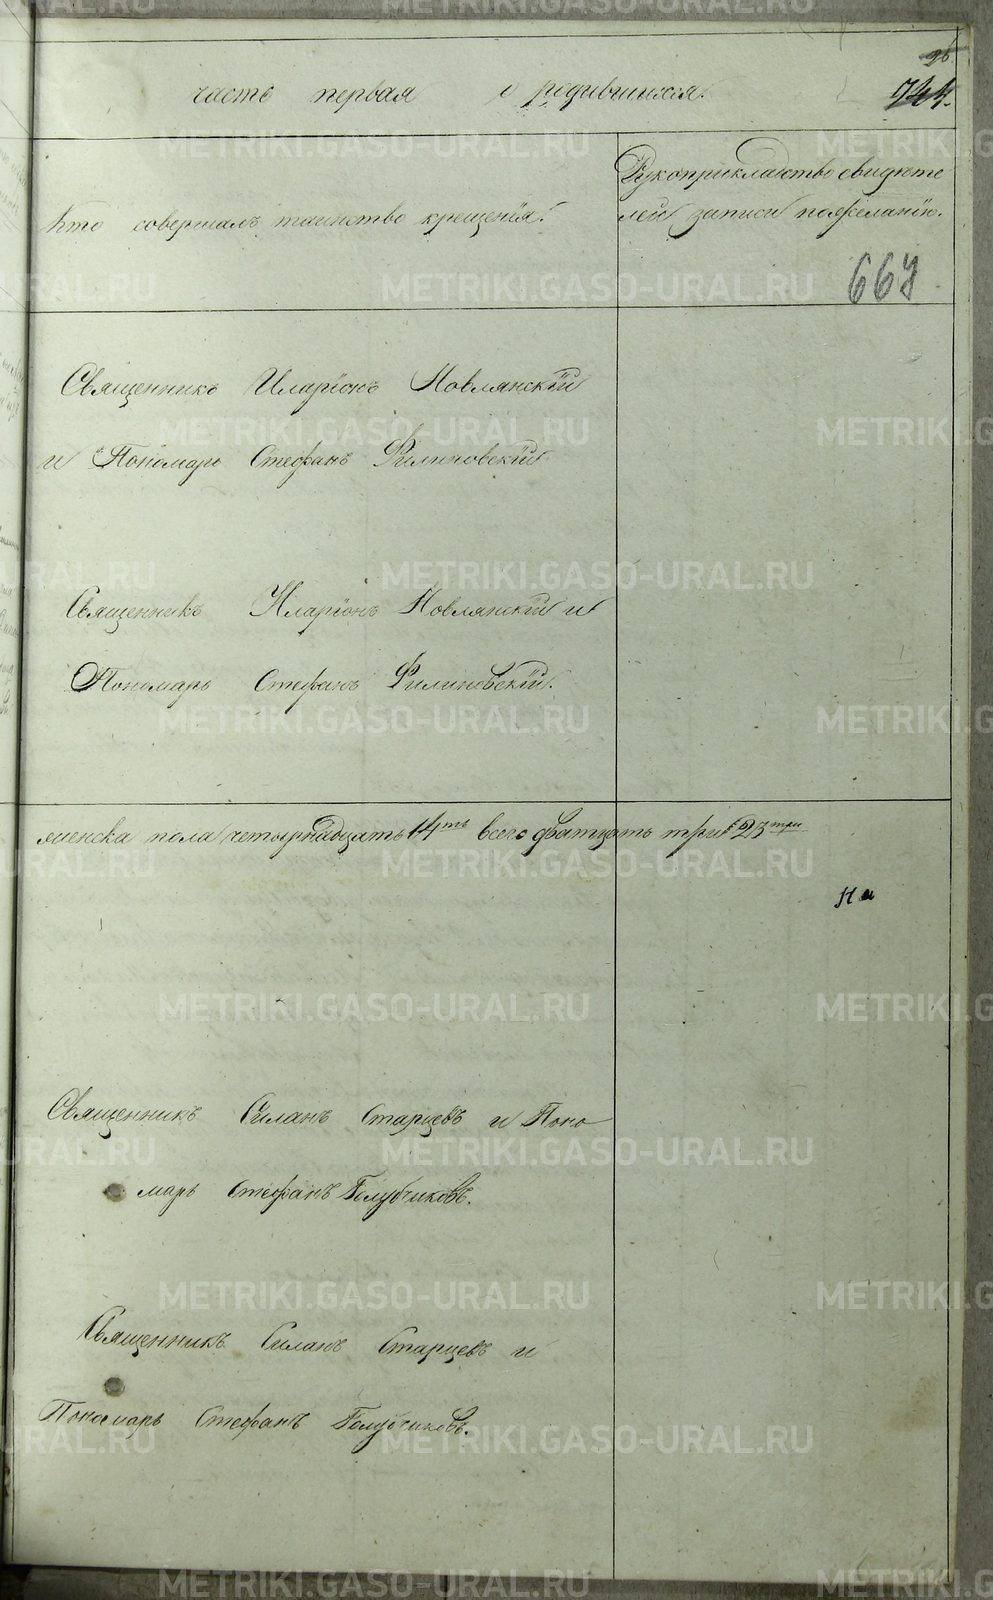 96
744.
часть первая о родившихся.
Кто совершалъ таинство крещенія.
Рукоприкладство свидѣте
лей записи по желанію.
667
Священникъ Иларіонъ Новлянскій
и Пономарь Стефанъ Филиновскій
Священникъ Иларіонъ Новлянскій и
Пономарь Стефанъ Филиновскій.
женска пола четырнадцать 14ть всего дватцать три 23 три
На
Священникъ Силанъ Старцевъ и Поно
марь Стефанъ Голубчиковъ.
Священникъ Силанъ Старцевъ и
Пономарь Стефанъ Голубчиковъ.
METRIKI.GASO-URAL.RU